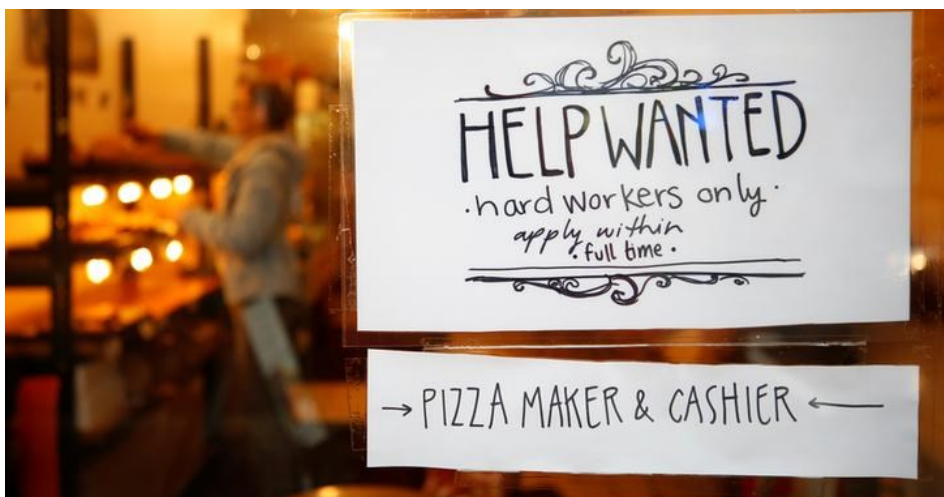 HELP WANTED
·hard workers only·
apply within
·full time·
→ PIZZA MAKER & CASHIER ←